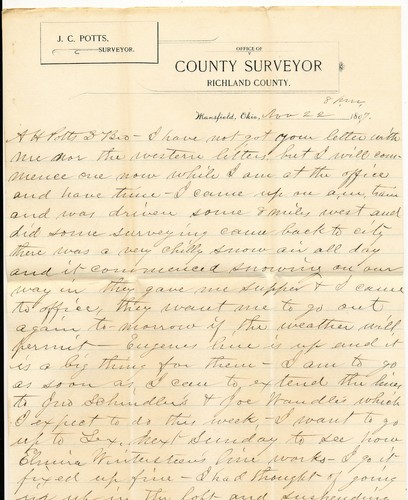 J. C. POTTS.
SURVEYOR.
OFFICE OF
COUNTY SURVEYOR
RICHLAND COUNTY.
8 P.M.
Mansfield, Ohio, Nov 22 1897.
A H Potts D Bro - I have not got your letter with
me nor the western letters but I will com-
mence one now while I am at the office
and have time - I came up on a.m. train
and was driven some 8 miles west and
did some surveying came back to city
there was a very chilly snow air all day
and it commenced snowing on our
way in they gave me supper & I came
to office, they want me to go out
again to morrow if the weather will
permit - Eugenes line is up and it
is a big thing for them - I am to go
as soon as I can to extend the lines
to Jno Schindler's & Joe Wandle's which
I expect to do this week - I want to go
up to Lex. next Sunday to see how
Elmira Winterstein's line works - I got it
fixed up fine - I had thought of going
up in the loft and suspending